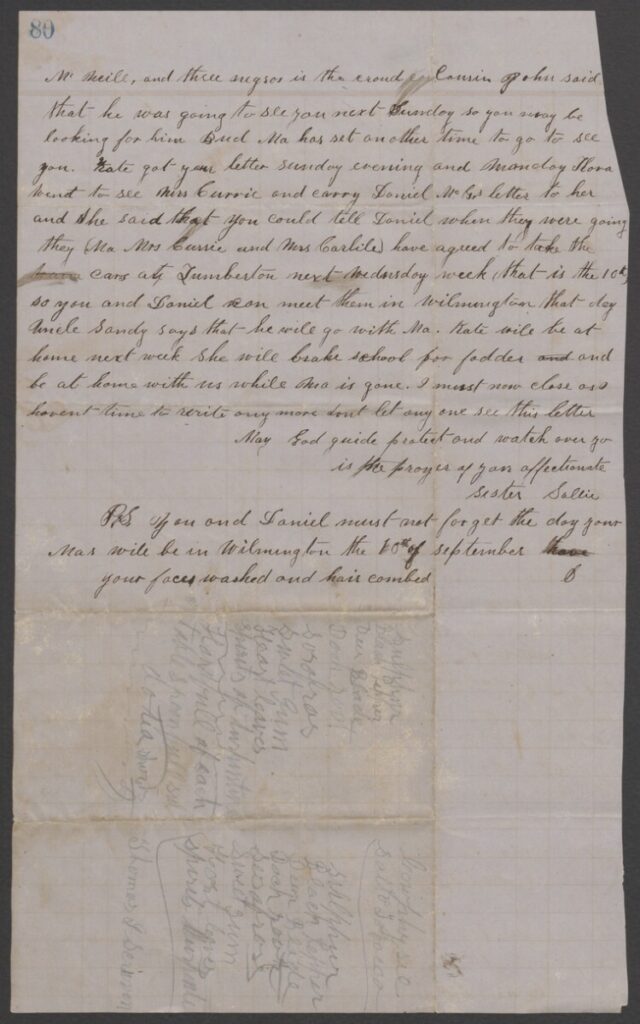 80
Mc Neill, and three negros is the croud Cousin John said
that he was going to see you next Sunday so you may be
looking for him Bud Ma has set another time to go to see
you. Kate got your letter sunday evening and Monday Flora
went to see Mrs Currie and carry Daniel Mc letter to her
and She said that you could tell Daniel when they were going
they (Ma Mrs Currie and Mrs Carlile) have agreed to take the
cars at Lumberton next Wednsday week (that is the 10th)
so you and Daniel can meet them in Wilmington that day
Uncle Sandy says that he wile go with Ma. Kate wile be at
home next week She will brake school for fodder and and
be at home with us while Ma is gone. I must now close as I
havent time to write any more dont let any one see this letter
May God guide protect and watch over yo
is the prayer of your affectionate
Sister Sallie
PS you and Daniel must not forget the day your
Mas wile be in Wilmington the 10th of september have
your faces washed and hair combed
Sulphur
Dock root
Sweet Gum
Heart leaves
hand full of each
Table spoon full
Sulphur
Dock root
Sweet Gum
Heart leaves
Thomas